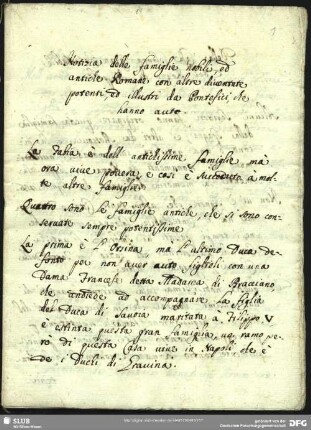 Notizia delle famiglie nobili, ed
antiche Romane con altre diventate
potenti ed illustri da Pontefici, che
hanno auto.
La Italia è dell' antichissime famiglie, ma
ora aue povera e così è succeduto a mol-
te altre famiglie
Quattro sono le famiglie antiche, che si sono con-
servate sempre potentissime
La prima è l'Orsina, ma l'ultimo Duca de-
fonto per non aver auto figlioli con una
Dama Francese detta Madama di Bracciano
che andiede ad accompagnare la figlia
del Duca di Savoia maritata a Filippo V
è estinta questa gran famiglia, un ramo pe-
rò di questa Casa vive in Napoli che è
de i Duchi di Gravina.
SLUB
Wir führen Wissen.
gefördert von der
Deutschen Forschungsgemeinschaft
DFG